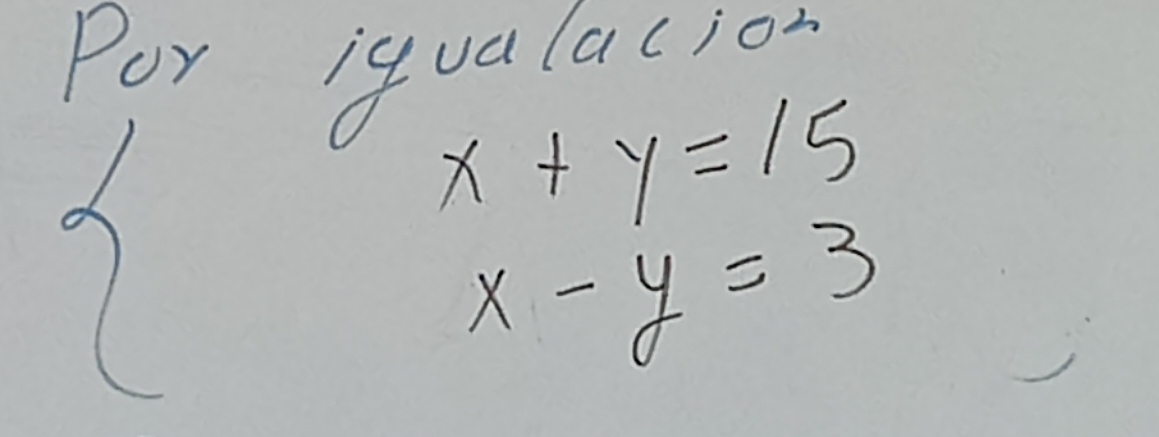 Por igualacion
x + y = 15
x - y = 3